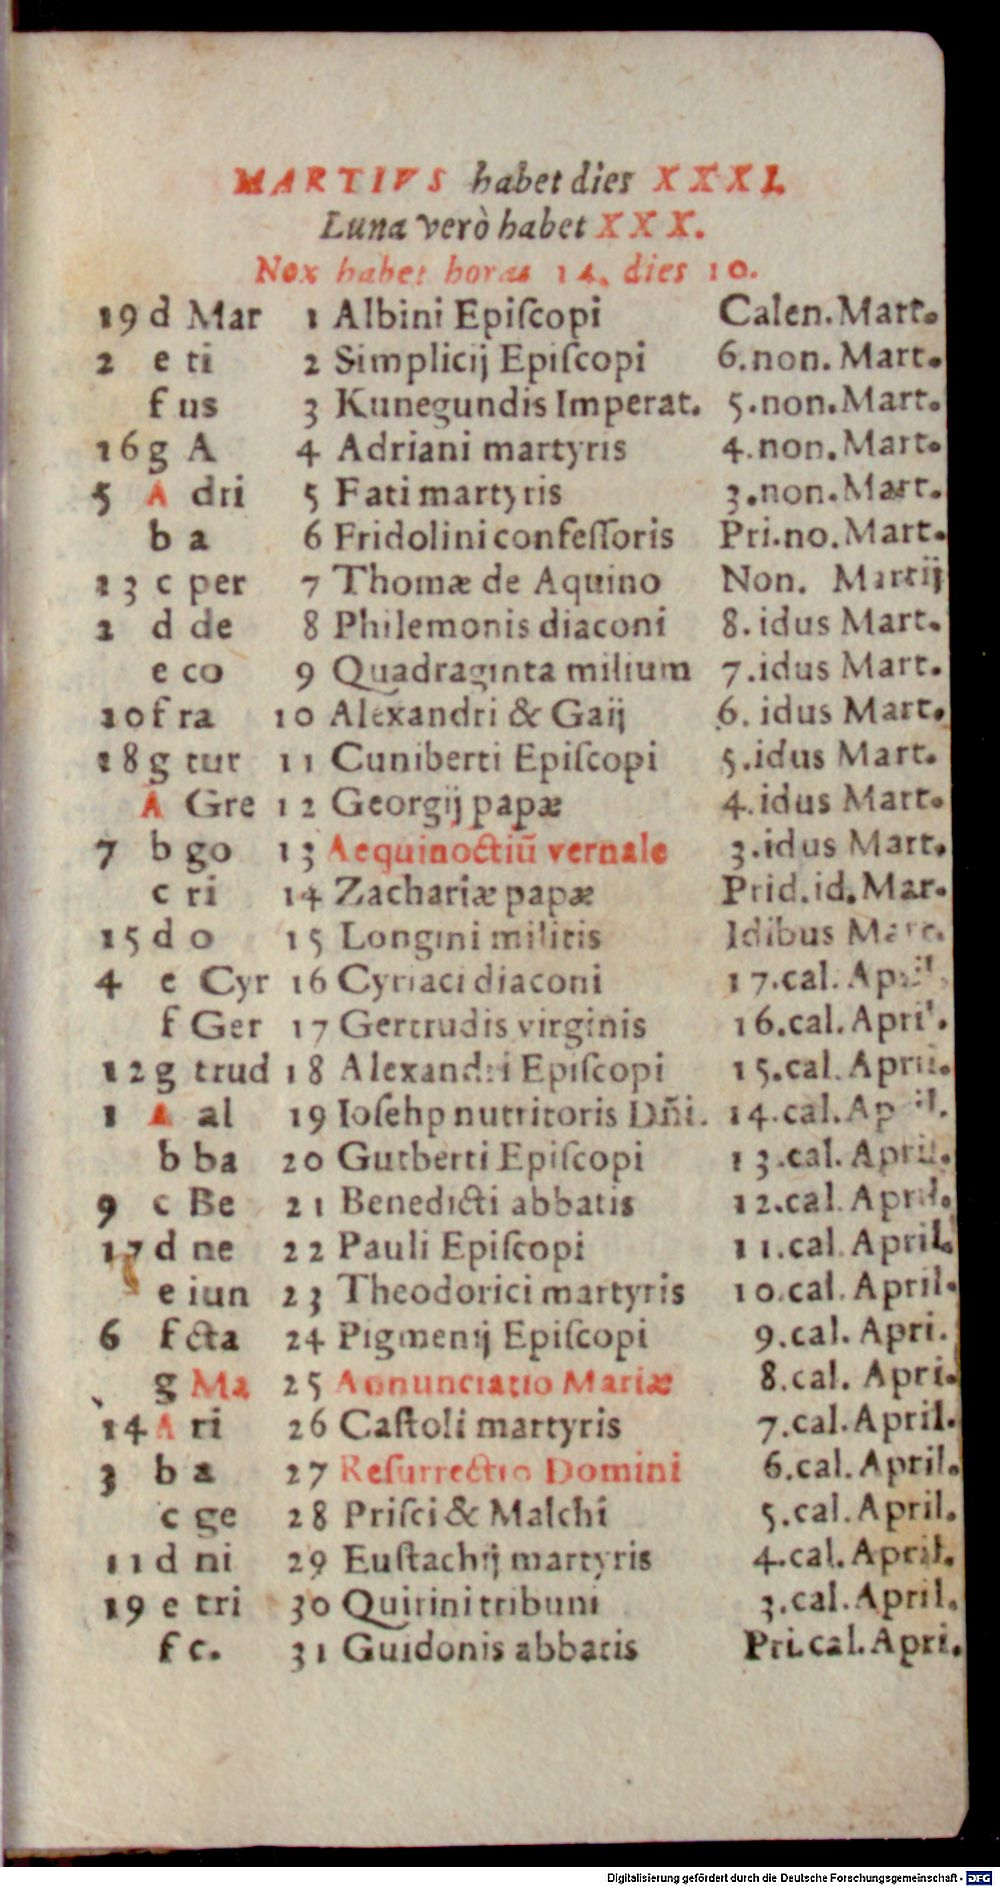 MARTIVS habet dies XXXI.
Luna verò habet XXX.
Nox habet horas 14. dies 10.
19 d Mar 1 Albini Epiſcopi Calen. Mart.
2 e ti 2 Simplicij Epiſcopi 6. non. Mart.
f us 3 Kunegundis Imperat. 5. non. Mart.
16 g A 4 Adriani martyris 4. non. Mart.
5 A dri 5 Fati martyris 3. non. Mart.
b a 6 Fridolini confeſſoris Pri. no. Mart.
13 c per 7 Thomæ de Aquino Non. Martij
2 d de 8 Philemonis diaconi 8. idus Mart.
e co 9 Quadraginta milium 7. idus Mart.
10 f ra 10 Alexandri & Gaij 6. idus Mart.
18 g tur 11 Cuniberti Epiſcopi 5. idus Mart.
A Gre 12 Georgij papæ 4. idus Mart.
7 b go 13 Aequinoctiũ vernale 3. idus Mart.
c ri 14 Zachariæ papæ Prid. id. Mar.
15 d o 15 Longini militis Idibus Mart.
4 e Cyr 16 Cyriaci diaconi 17. cal. April.
f Ger 17 Gertrudis virginis 16. cal. April.
12 g trud 18 Alexandri Epiſcopi 15. cal. April.
1 A al 19 Ioſehp nutritoris Dñi. 14. cal. April.
b ba 20 Gutberti Epiſcopi 13. cal. April.
9 c Be 21 Benedicti abbatis 12. cal. April.
17 d ne 22 Pauli Epiſcopi 11. cal. April.
e iun 23 Theodorici martyris 10. cal. April.
6 f cta 24 Pigmenij Epiſcopi 9. cal. Apri.
g Ma 25 Annunciatio Mariæ 8. cal. Apri.
14 A ri 26 Caſtoli martyris 7. cal. April.
3 b a 27 Reſurrectio Domini 6. cal. April.
c ge 28 Priſci & Malchi 5. cal. April.
11 d ni 29 Euſtachij martyris 4. cal. April.
19 e tri 30 Quirini tribuni 3. cal. April.
f c. 31 Guidonis abbatis Pri. cal. Apri.
Digitalisierung gefördert durch die Deutsche Forschungsgemeinschaft - DFG